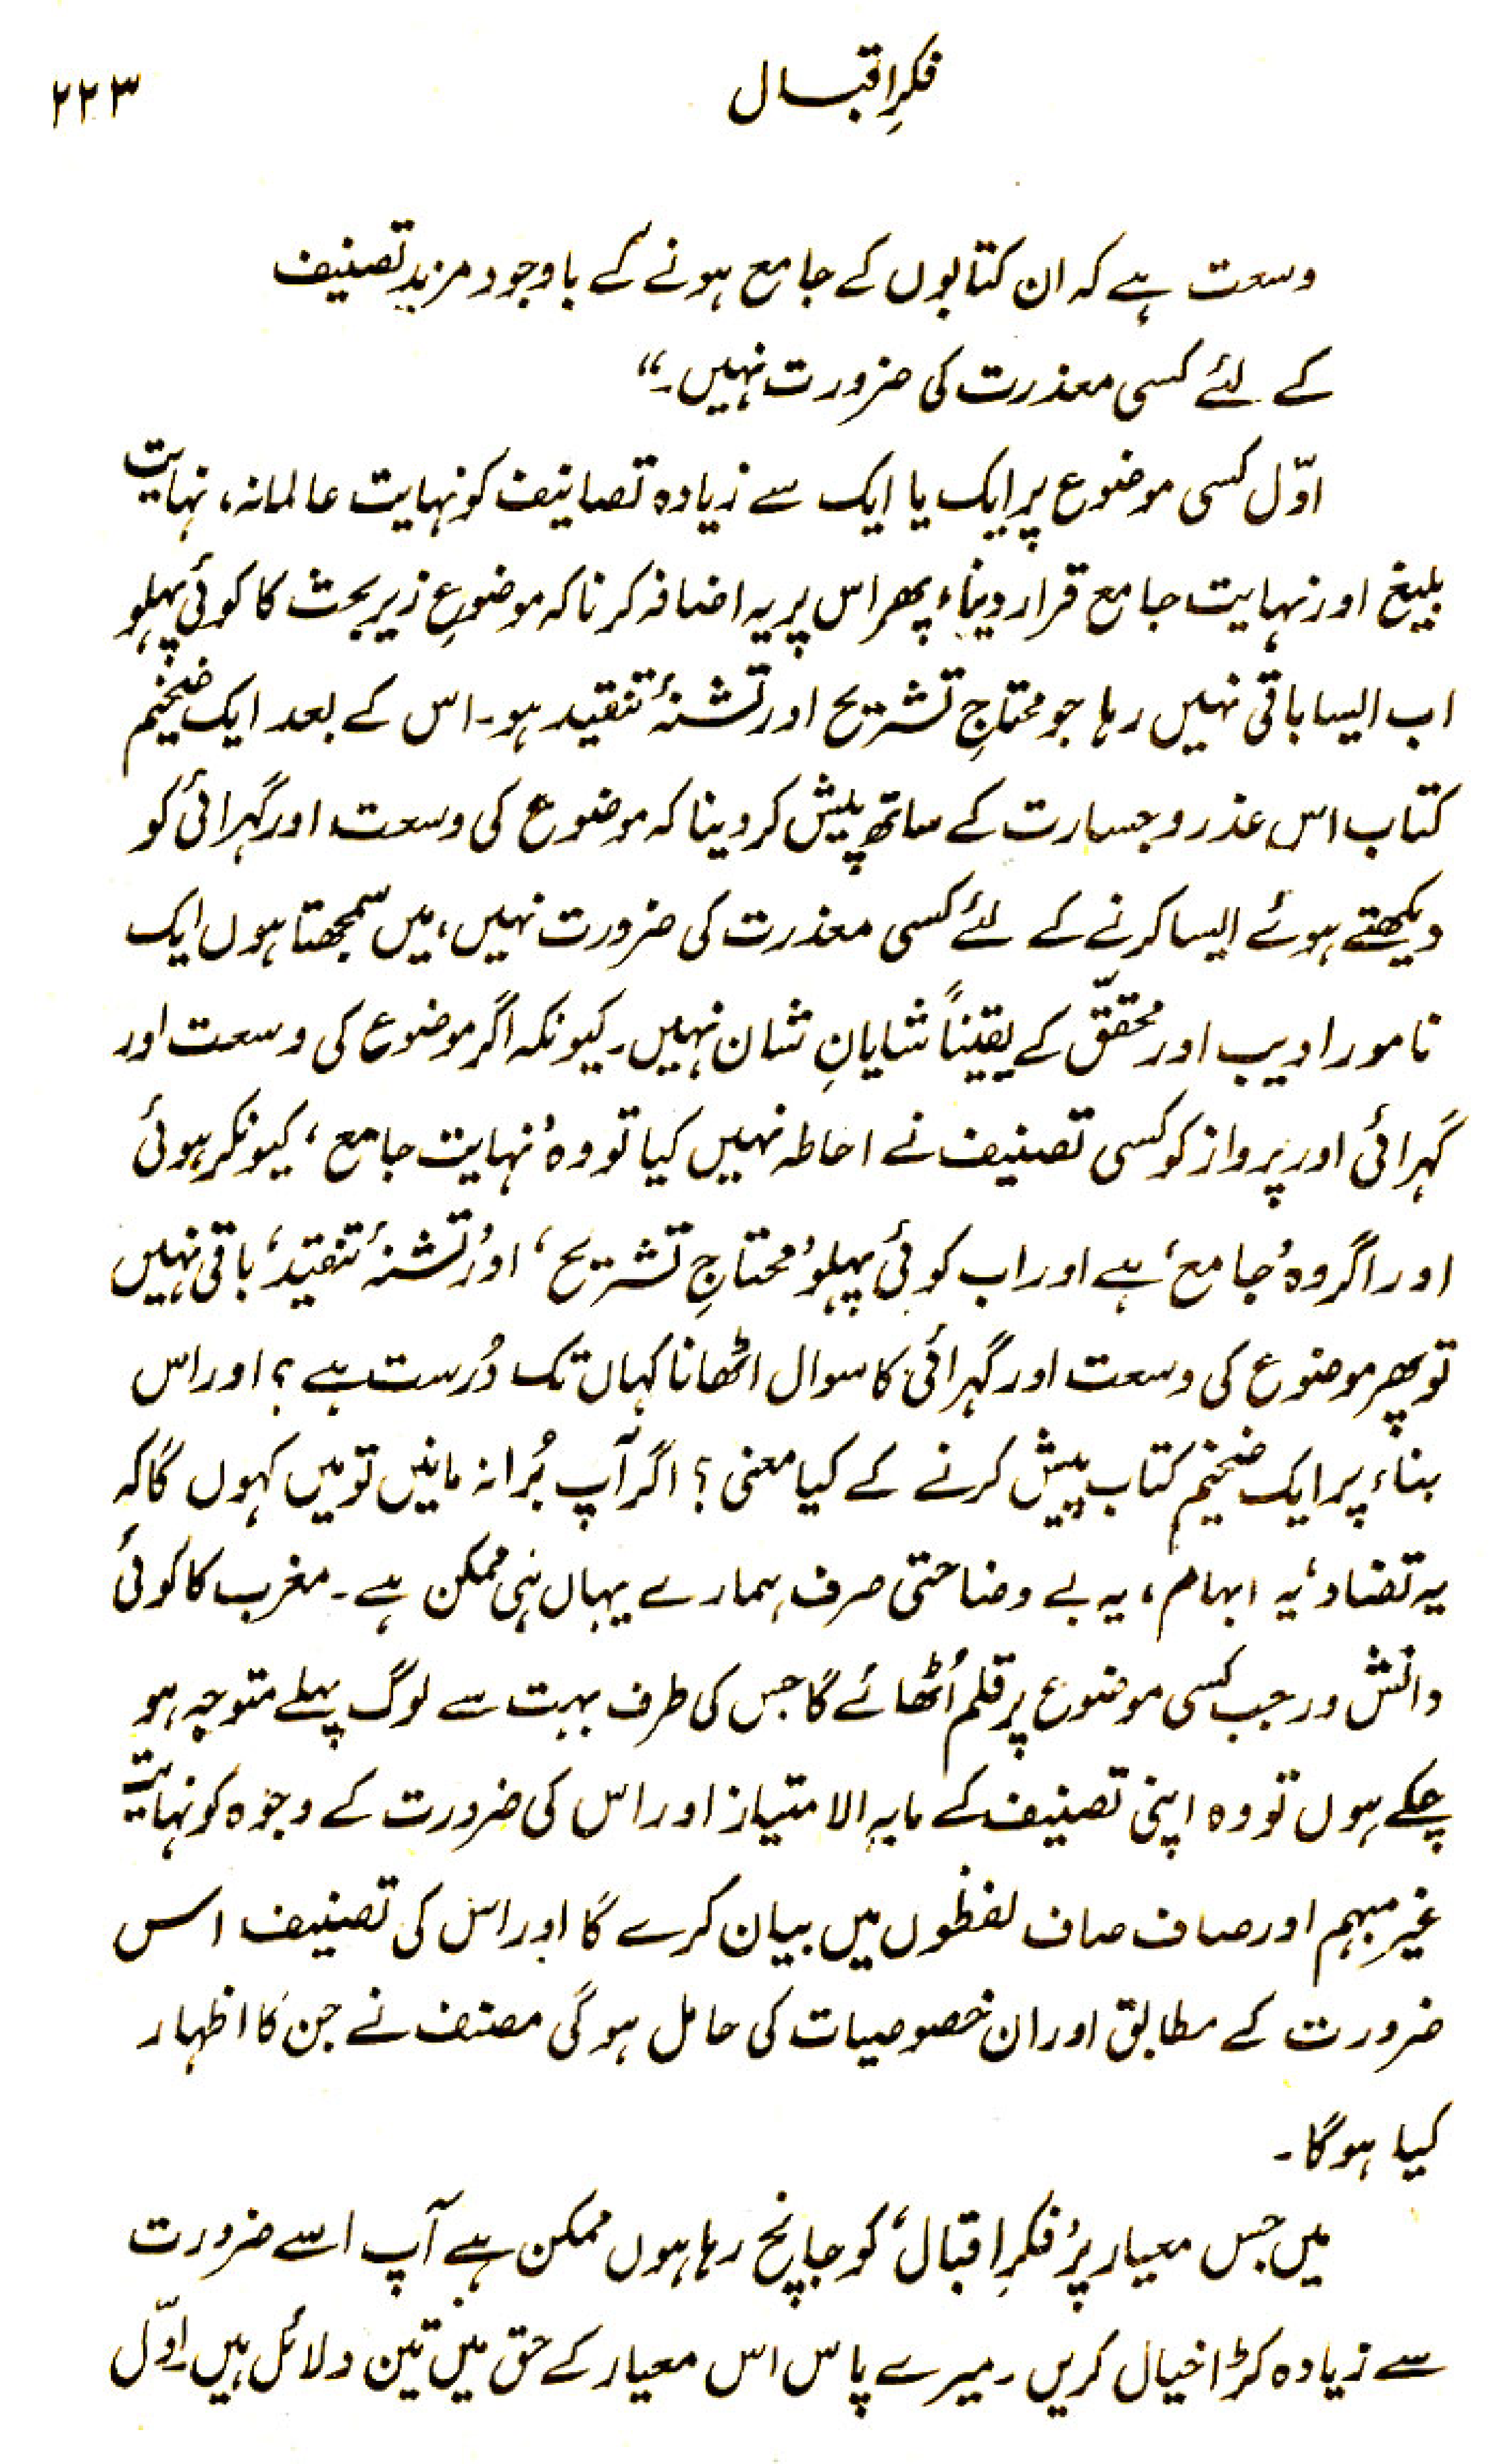 فکرِ اقبال
۲۲۳
وسعت ہے کہ ان کتابوں کے جامع ہونے کے باوجود مزید تصنیف
کے لئے کسی معذرت کی ضرورت نہیں۔“
اوّل کسی موضوع پر ایک یا ایک سے زیادہ تصانیف کو نہایت عالمانہ، نہایت
بلیغ اور نہایت جامع قرار دینا، پھر اس پر یہ اضافہ کرنا کہ موضوعِ زیر بحث کا کوئی پہلو
اب ایسا باقی نہیں رہا جو محتاجِ تشریح اور تشنۂ تنقید ہو۔ اس کے بعد ایک ضخیم
کتاب اس عذر و جسارت کے ساتھ پیش کر دینا کہ موضوع کی وسعت اور گہرائی کو
دیکھتے ہوئے ایسا کرنے کے لئے کسی معذرت کی ضرورت نہیں، میں سمجھتا ہوں ایک
نامور ادیب اور محقّق کے یقیناً شایانِ شان نہیں۔ کیونکہ اگر موضوع کی وسعت اور
گہرائی اور پرواز کو کسی تصنیف نے احاطہ نہیں کیا تو وہ ’نہایت جامع‘ کیونکر ہوئی
اور اگر وہ ’جامع‘ ہے اور اب کوئی پہلو ’محتاجِ تشریح‘ اور ’تشنۂ تنقید‘ باقی نہیں
تو پھر موضوع کی وسعت اور گہرائی کا سوال اٹھانا کہاں تک دُرست ہے؟ اور اس
بناء پر ایک ضخیم کتاب پیش کرنے کے کیا معنی؟ اگر آپ بُرا نہ مانیں تو میں کہوں گا کہ
یہ تضاد، یہ ابہام، یہ بے وضاحتی صرف ہمارے یہاں ہی ممکن ہے۔ مغرب کا کوئی
دانش ور جب کسی موضوع پر قلم اُٹھائے گا جس کی طرف بہت سے لوگ پہلے متوجہ ہو
چکے ہوں تو وہ اپنی تصنیف کے مابہ الامتیاز اور اس کی ضرورت کے وجوہ کو نہایت
غیر مبہم اور صاف صاف لفظوں میں بیان کرے گا اور اس کی تصنیف اس
ضرورت کے مطابق اور ان خصوصیات کی حامل ہو گی مصنف نے جن کا اظہار
کیا ہو گا۔
میں جس معیار پر ’فکرِ اقبال‘ کو جانچ رہا ہوں ممکن ہے آپ اسے ضرورت
سے زیادہ کڑا خیال کریں۔ میرے پاس اس معیار کے حق میں تین دلائل ہیں۔ اوّل